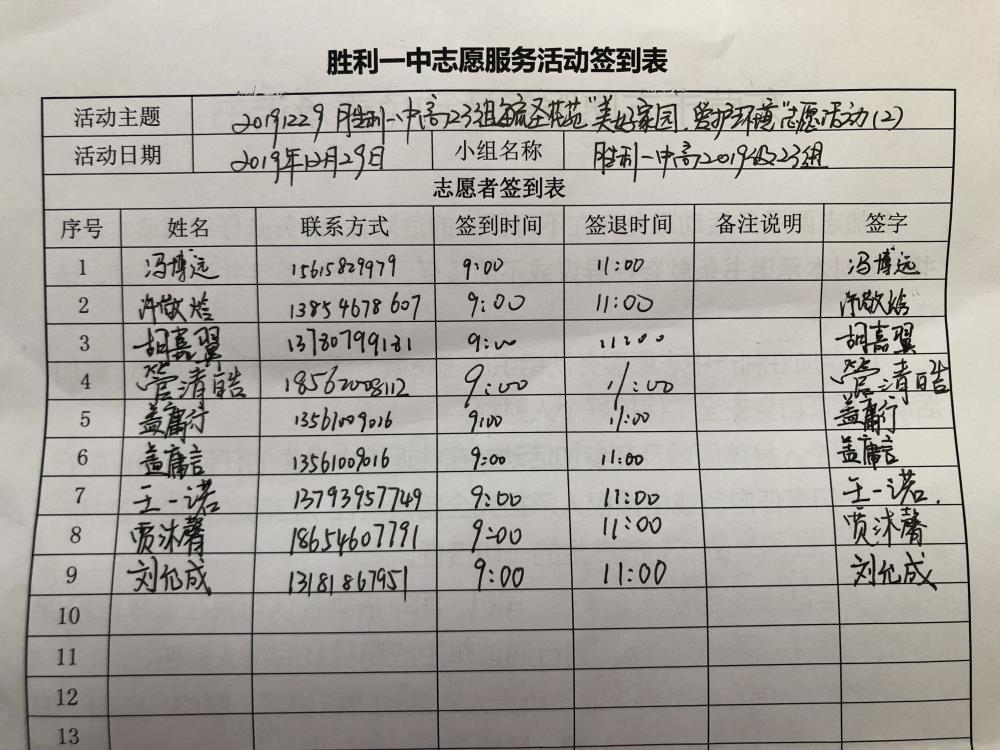 胜利一中志愿服务活动签到表
活动主题 20191229 胜利一中高23组 "美好家园，爱护环境"志愿活动(2)
活动日期 2019年12月29日 小组名称 胜利一中高2019级23组
志愿者签到表
序号 姓名 联系方式 签到时间 签退时间 备注说明 签字
1 冯博远 15615829979 9:00 11:00 冯博远
2 许敬 13854678607 9:00 11:00 许敬
3 胡嘉翼 13780799181 9:00 11:00 胡嘉翼
4 管清皓 18562008112 9:00 11:00 管清皓
5 盖庸行 13561009016 9:00 11:00 盖庸行
6 盖庸言 13561009016 9:00 11:00 盖庸言
7 王一诺 13793957749 9:00 11:00 王一诺
8 贾沐馨 18654607791 9:00 11:00 贾沐馨
9 刘允成 13181867951 9:00 11:00 刘允成
10
11
12
13